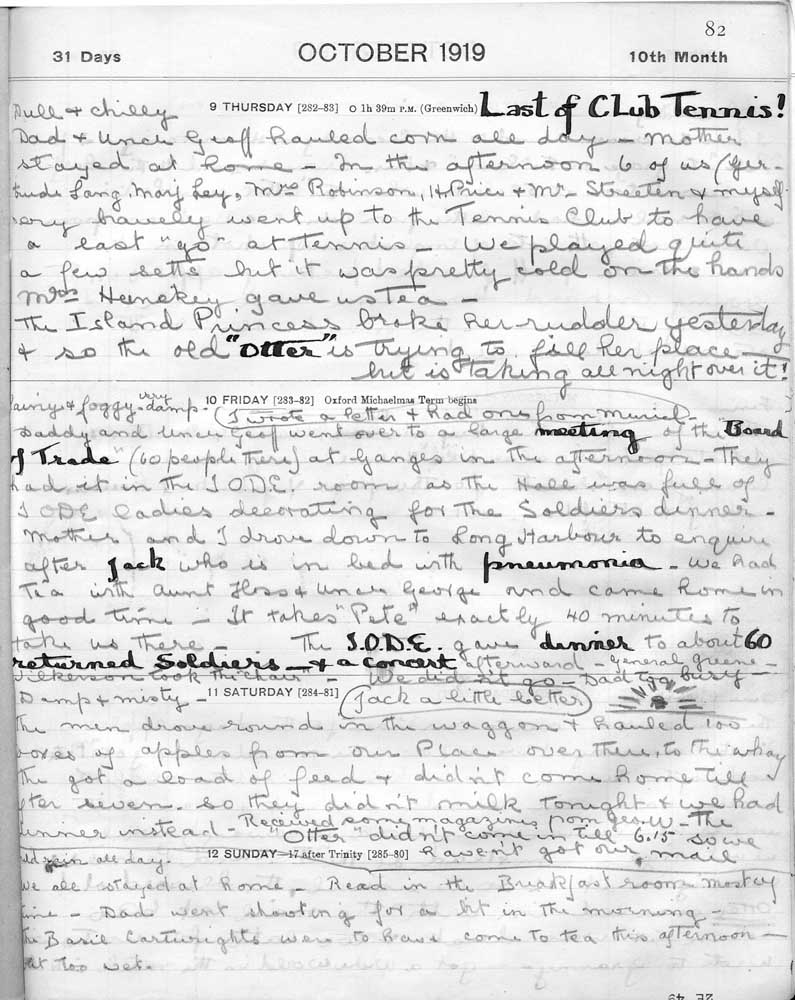 82
31 Days OCTOBER 1919 10th Month
Dull & chilly 9 THURSDAY [282-83] O 1h 39m P.M. (Greenwich) Last of Club Tennis!
Dad & Uncle Geoff hauled corn all day - Mother
stayed at home - In the afternoon 6 of us (Ger-
trude Lang, Marj Ley, Mrs Robinson, H. Price & Mr Streeten & myself
very bravely went up to the Tennis Club to have
a last "go" at Tennis - We played quite
a few setts but it was pretty cold on the hands
Mrs Henekey gave us Tea -
The Island Princess broke her rudder yesterday
& so the old "Otter" is trying to fill her place -
but is taking all night over it!
rainy & foggy very damp - 10 FRIDAY [283-82] Oxford Michaelmas Term begins
(I wrote a letter & had one from Muriel -
Daddy and Uncle Geoff went over to a large meeting of the "Board
of Trade" (60 people there) at Ganges in the afternoon - They
had it in the I.O.D.E. room as the Hall was full of
IODE ladies decorating for The Soldiers dinner -
Mother and I drove down to Long Harbour to enquire
after Jack who is in bed with pneumonia - We had
Tea with Aunt Floss & Uncle George and came home in
good time - It takes "Pete" exactly 40 minutes to
take us there - The I.O.D.E. gave dinner to about 60
returned Soldiers - & a concert afterward - General Greene -
Wilkerson took the "chair" - We did not go - Dad too busy -
Damp & misty - 11 SATURDAY [284-81] (Jack a little better)
The men drove round in the waggon & hauled 100
boxes of apples from our Place over there, to the wharf
The got a load of feed & didn't come home till
after seven. So they didn't milk Tonight & we had
dinner instead - Received some magazines from Geo. W - The
"Otter" didn't come in till 6.15 so we
rain all day. 12 SUNDAY-17 after Trinity [285-80] haven't got our mail
We all stayed at home - Read in the Breakfast room mostly
time - Dad went shooting for a bit in the morning -
The Basil Cartwrights were to have come to tea this afternoon -
but too wet.